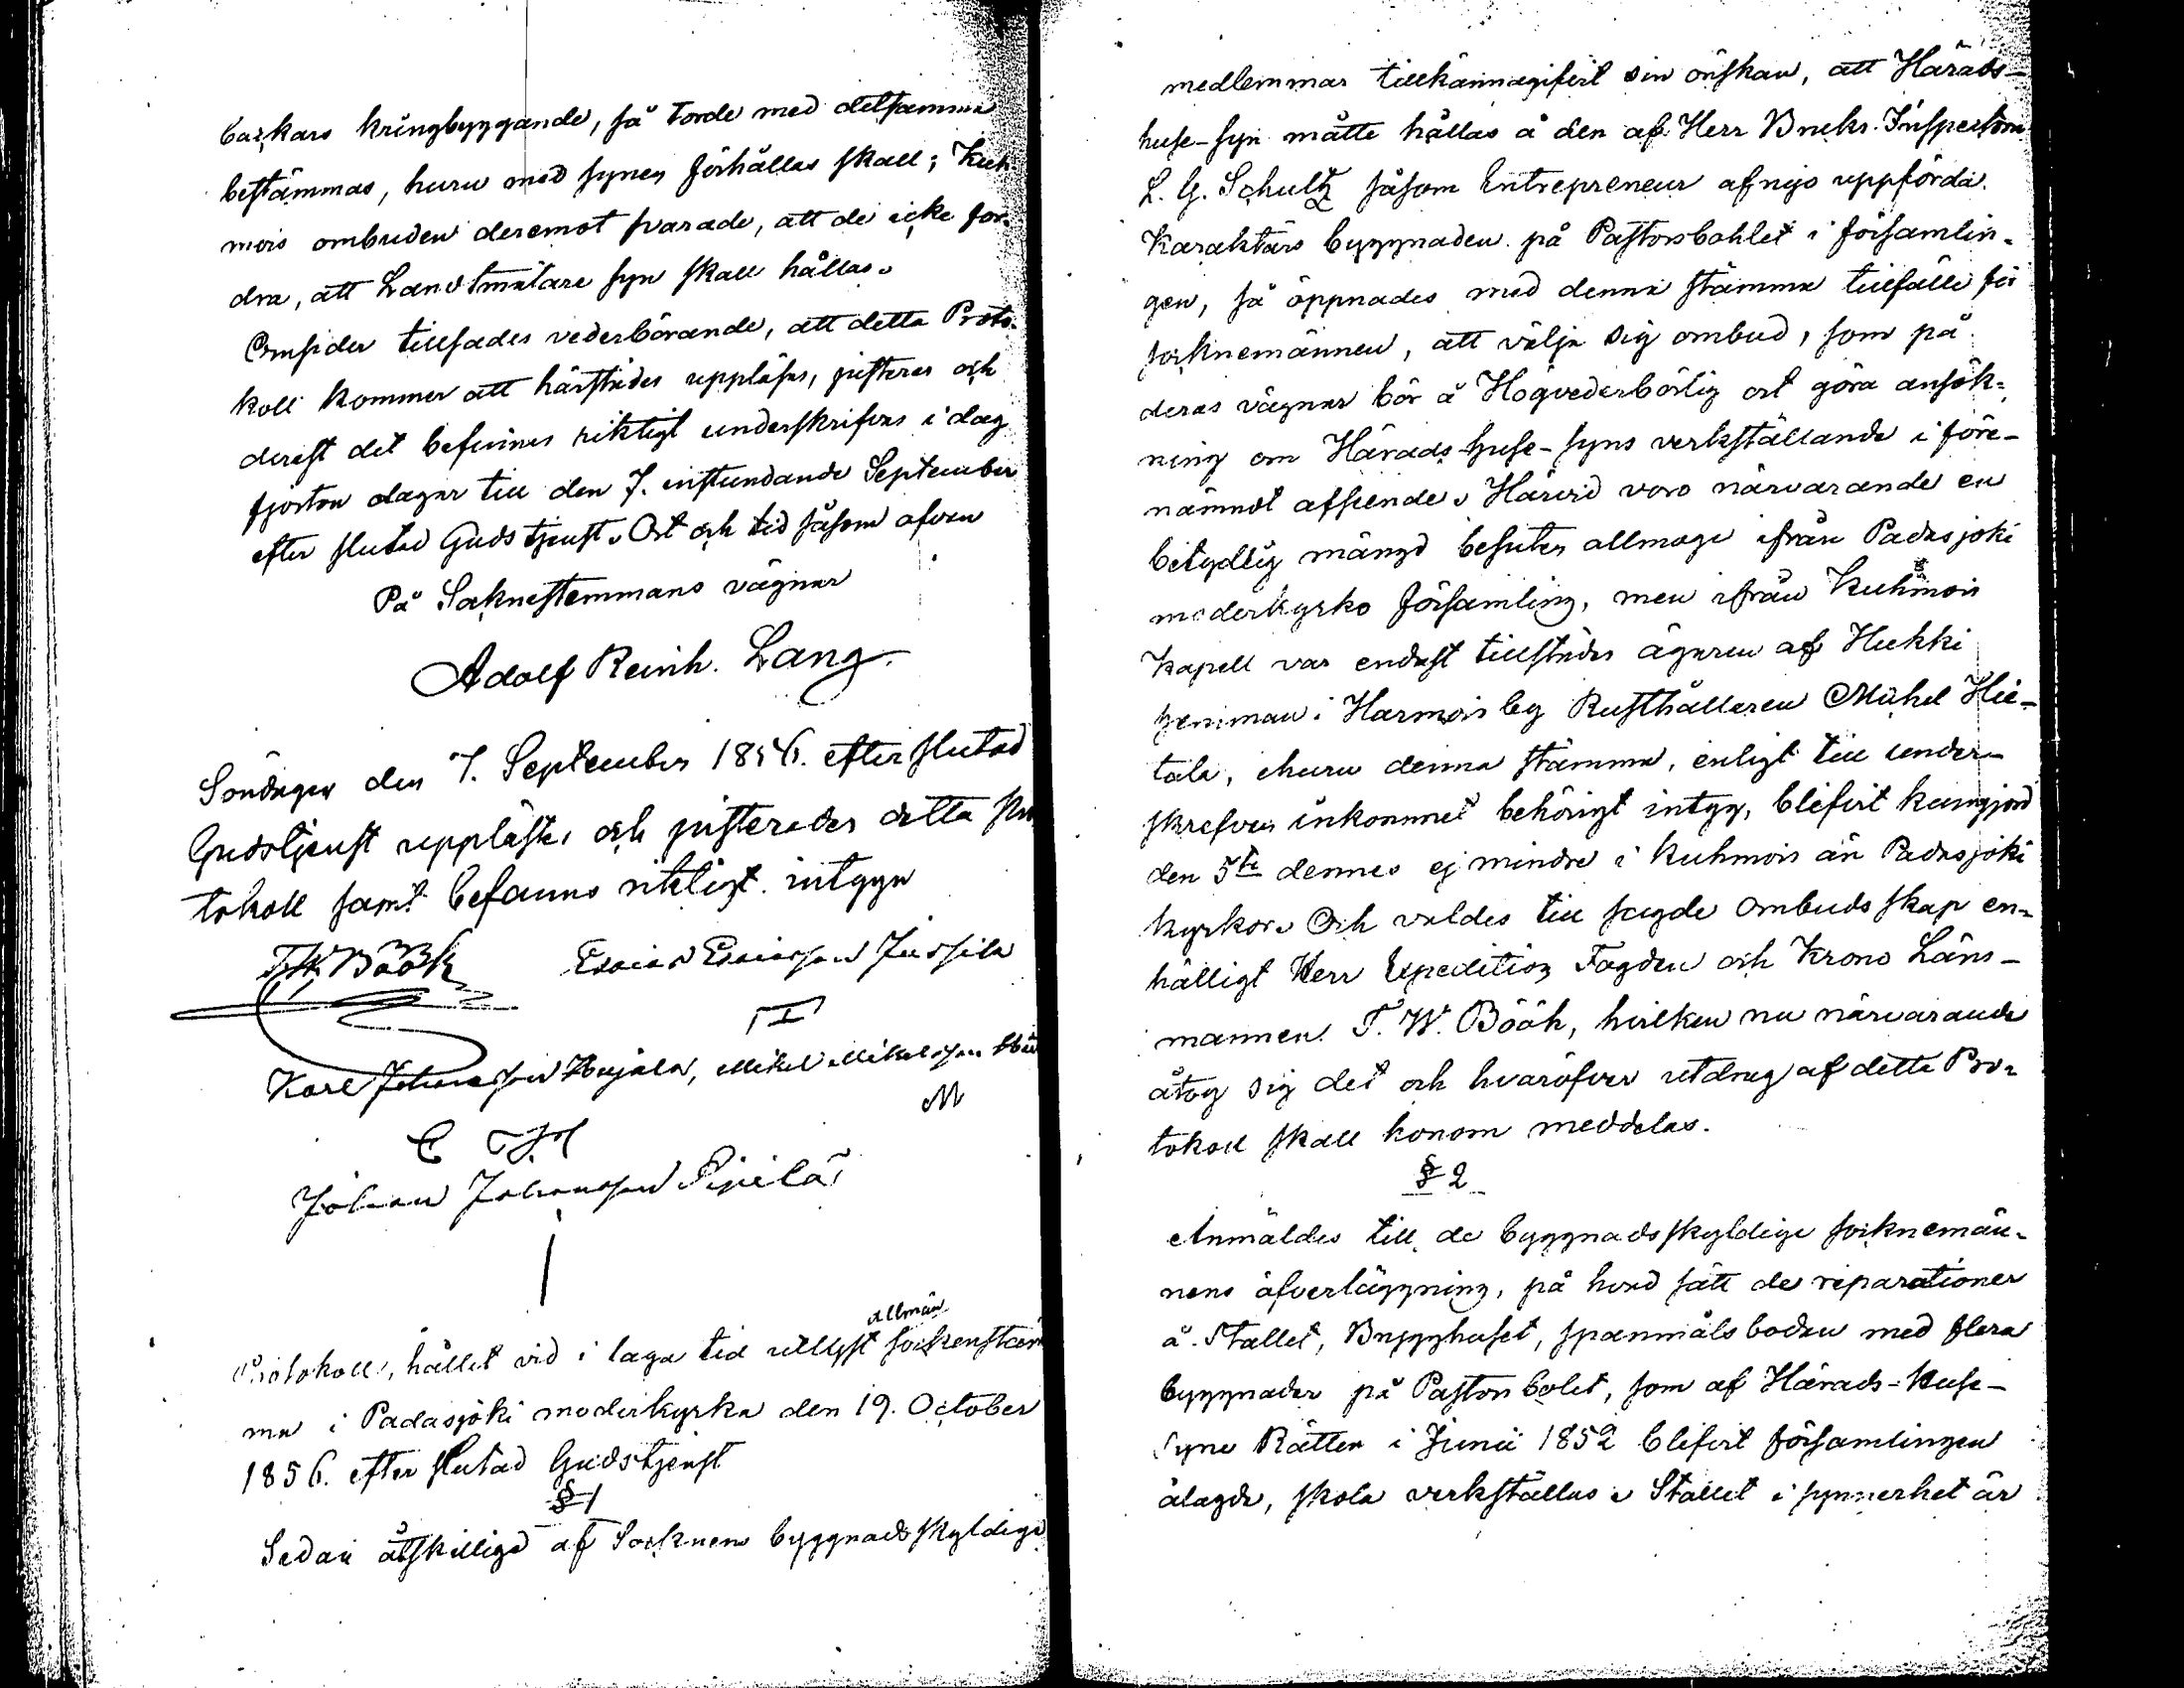 karkars kringbyggande, så torde med detsamma
bestämmas, huru med synen förhållas skall; Kuh-
mois ombuden deremot svarade, att de icke for-
dra, att Landtmätare syn skall hållas.
Omsider tillsades vederbörande, att detta Proto-
koll kommer att härstädes uppläsas, justeras och
derest det befinnes riktigt underskrifvas i dag
fjorton dagar till den 7. instundande September
efter slutad Gudstjenst. Ort och tid såsom ofvan
På Socknestemmans vägnar
Adolf Reinh. Lang.
Söndagen den 7. September 1856. efter slutad
Gudstjenst upplästes och justerades detta Pro
tokoll samt befanns riktigt. intyga
F. W. Böök Esaias Esaiasson Jussila
Karl Johansson Heijala, Mikel Mikelsson
M
Johan Johansson Pipilä
Protokoll, hållet vid i laga tid utlyst allmän sockenstäm
ma i Padasjoki moderkyrka den 19. October
1856. efter slutad Gudstjenst
§ 1
Sedan åtskillige af Socknens byggnadsskyldige
medlemmar tillkännagifvit sin önskan, att Härads-
huse-syn måtte hållas å den af Herr Bruks-Inspectorn
L. G. Schultz såsom Entrepreneur af nyo uppförda
Karaktärs byggnaden på Pastorsbohlet i församlin-
gen, så öppnades med denna stämma tillfälle för
socknemännen, att välja sig ombud, som på
deras vägnar bör å Högvederbörlig ort göra ansök-
ning om Härads-huse-syns verkställande i före-
nämndt afseende. Härvid voro närvarande en
betydlig mängd besuten allmoge ifrån Padasjoki
moderkyrko församling, men ifrån Kuhmois
kapell var endast tillstädes ägaren af Hukki
hemman i Harmois by Rusthållaren Michel Hie-
tala, ehuru denna stämma, enligt till under-
skrefven inkommet behörigt intyg, blifvit kungjord
den 5te dennes ej mindre i Kuhmois än Padasjoki
kyrkor. Och valdes till sagde ombudskap en-
hälligt Herr Expedition Fogden och Krono Läns-
mannen F. W. Böök, hvilken nu närvarande
åtog sig det och hvaröfver utdrag af detta Pro-
tokoll skall honom meddelas.
§ 2
Anmäldes till de byggnadsskyldige socknemän-
nens öfverläggning, på hvad sätt de reparationer
å Stallet, Brygghuset, spannmåls boden med flera
byggnader på Pastorsbolet, som af Härads-Huse-
Syne Rätten i Junii 1852 blifvit församlingen
ålagde, skola verkställas. Stallet i synnerhet är